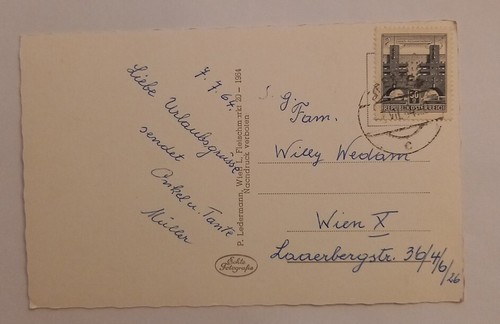 7.7.64.
Liebe Urlaubsgrüsse
sendet
Onkel u. Tante
Müller
P. Ledermann, Wien I., Fleischm rkt 20 – 1964
Nachdruck verboten
Echte
Fotografie
REPUBLIK ÖSTERREICH
S. g.
Fam.
Willy Wedam
Wien X
Laaerbergstr. 36/4/6/26